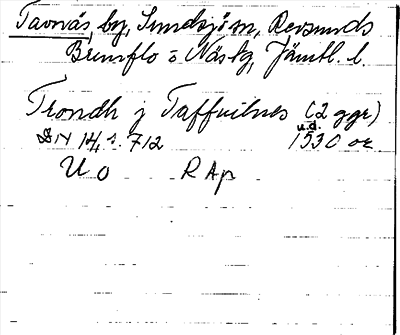 Tavnäs, by, Sundsjö sn, Revsunds
Brunflo o Näs tg, Jämtl. l.
Trondh j Taffuilnes (2 ggr)
DN 14, s. 712 u.d. 1530 or
U O R Ap